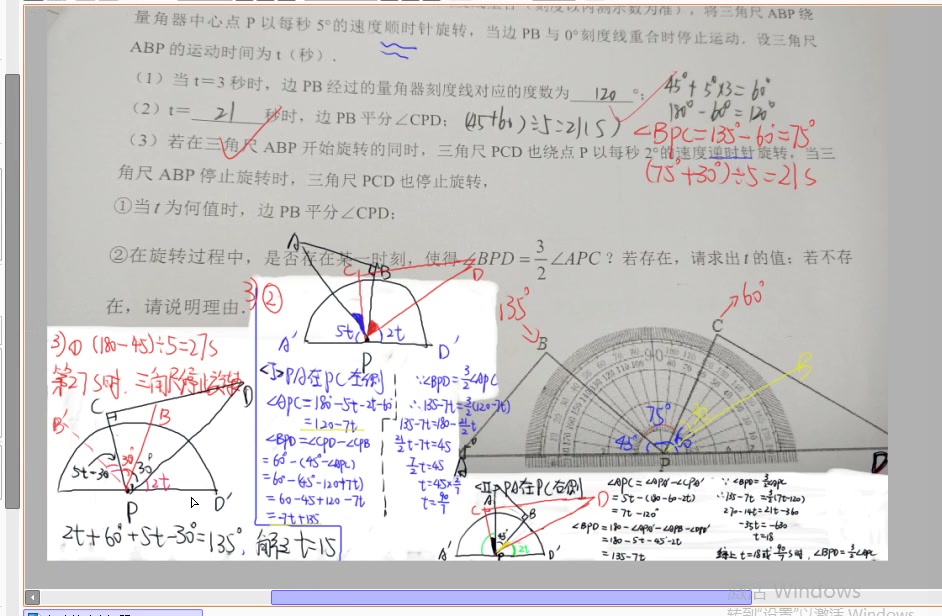 量角器中心点 P 以每秒 5°的速度顺时针旋转，当边 PB 与 0°刻度线重合时停止运动．设三角尺
ABP 的运动时间为 t（秒）．
（1）当 t＝3 秒时，边 PB 经过的量角器刻度线对应的度数为 120 °；
45°+5°×3=60°
180°-60°=120°
（2）t= 21 秒时，边 PB 平分∠CPD；
(45+60)÷5=21(s)
∠BPC=135°-60°=75°
(75°+30°)÷5=21s
（3）若在三角尺 ABP 开始旋转的同时，三角尺 PCD 也绕点 P 以每秒 2°的速度逆时针旋转，当三
角尺 ABP 停止旋转时，三角尺 PCD 也停止旋转，
①当 t 为何值时，边 PB 平分∠CPD；
②在旋转过程中，是否存在某一时刻，使得∠BPD=3/2∠APC？若存在，请求出 t 的值；若不存
在，请说明理由．
3)① (180-45)÷5=27s
第27s时，三角尺停止旋转
C B D
B'
5t-30 30° 30° 2t
P D'
2t+60°+5t-30°=135°，解之 t=15
3)②
A C B D
5t 2t
A' P D'
<Ⅰ>PA在PC左侧
∠APC=180°-5t-2t-60
=120-7t
∠BPD=∠CPD-∠CPB
=60°-(45°-∠APC)
=60°-(45°-120+7t)
=60-45+120-7t
=-7t+135
∵∠BPD=3/2∠APC
∴135-7t=3/2(120-7t)
135-7t=180-21/2t
21/2t-7t=45
7/2t=45
t=45×2/7
t=90/7
135° 60°
B C
75°
45° 60
P D
<Ⅱ>PA在PC右侧
A C B D
45° 2t
A' P D'
∠APC=∠APA'-∠CPA'
=5t-(180-60-2t)
=7t-120°
∠BPD=180-∠APA'-∠APB-∠DPD'
=180-5t-45-2t
=135-7t
∵∠BPD=3/2∠APC
∴135-7t=3/2(7t-120)
270-14t=21t-360
-35t=-630
t=18
综上 t=18或90/7s时，∠BPD=3/2∠APC
激活 Windows
转到"设置"以激活 Windows